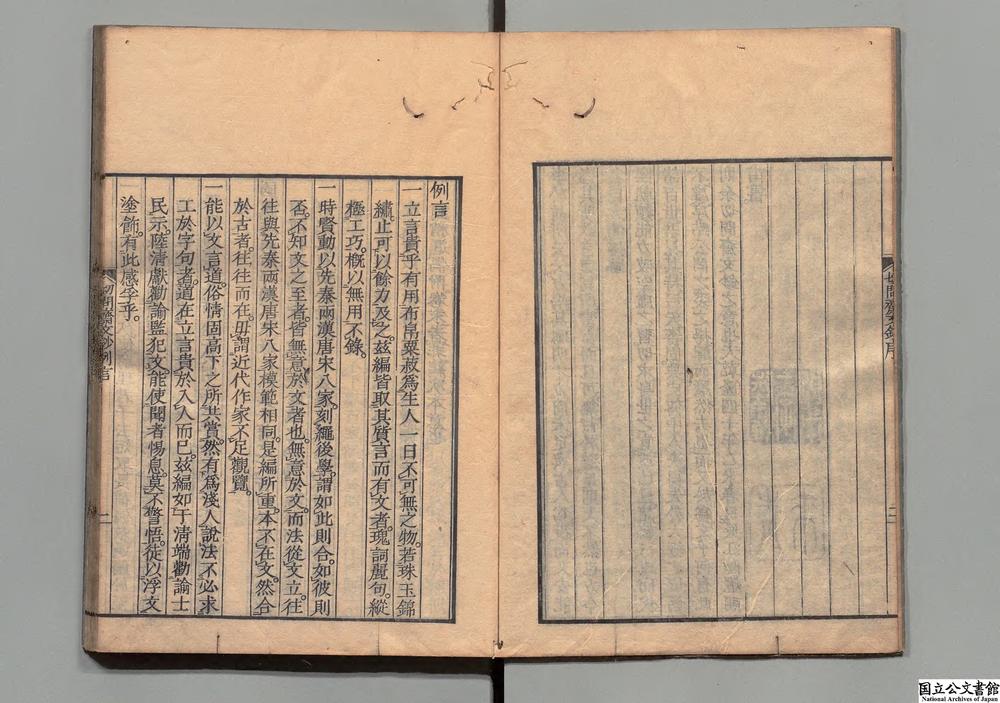 切問齋文鈔序
例言
一立言貴乎有用布帛粟菽爲生人一日不可無之物若珠玉錦
繡止可以餘力及之茲編皆取其質言而有文者瑰詞麗句縱
極工巧槪以無用不錄
一時賢動以先秦兩漢唐宋八家刻繩後學謂如此則合如彼則
否不知文之至者皆無意於文者也無意於文而法從文立往
往與先秦兩漢唐宋八家模範相同是編所重本不在文然合
於古者往往而在毋謂近代作家不足觀覽
一能以文言道俗情固高下之所共賞然有爲淺人說法不必求
工於字句者道在立言貴於入人而已茲編如于淸端勸諭士
民示陸淸獻勸諭監犯文能使聞者惕息莫不警悟徒以浮文
塗飾有此感孚乎
切問齋文鈔例言
一
国立公文書館
National Archives of Japan